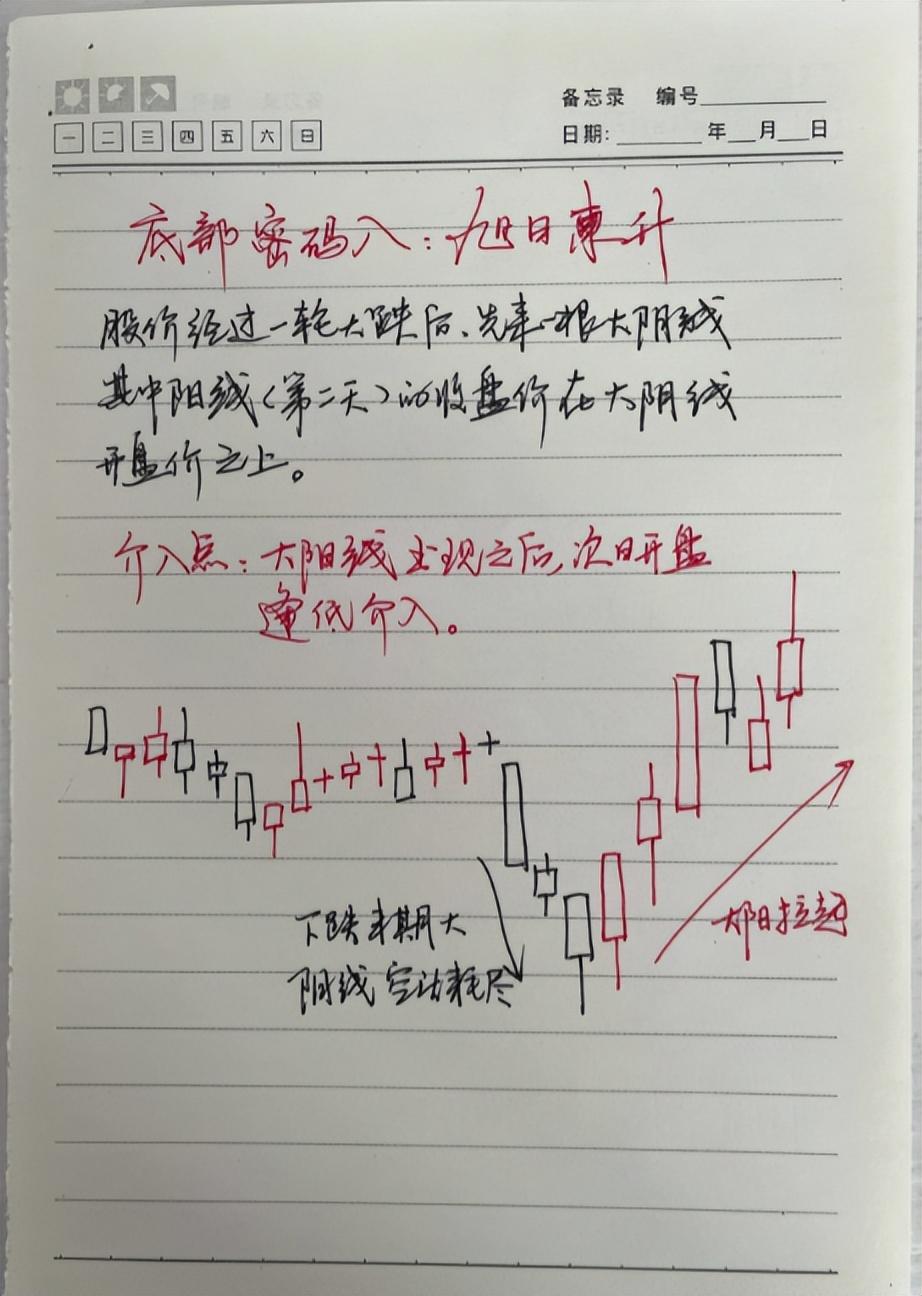 备忘录 编号
一 二 三 四 五 六 日
日期: 年 月 日
底部密码八：旭日東升
股价经过一轮大跌后、先来一根大阴线
其中阳线（第二天）的收盘价在大阴线
开盘价之上。
介入点：大阳线出现之后，次日开盘
逢低介入。
下跌末期大
阴线 空法耗尽
大阳拉起